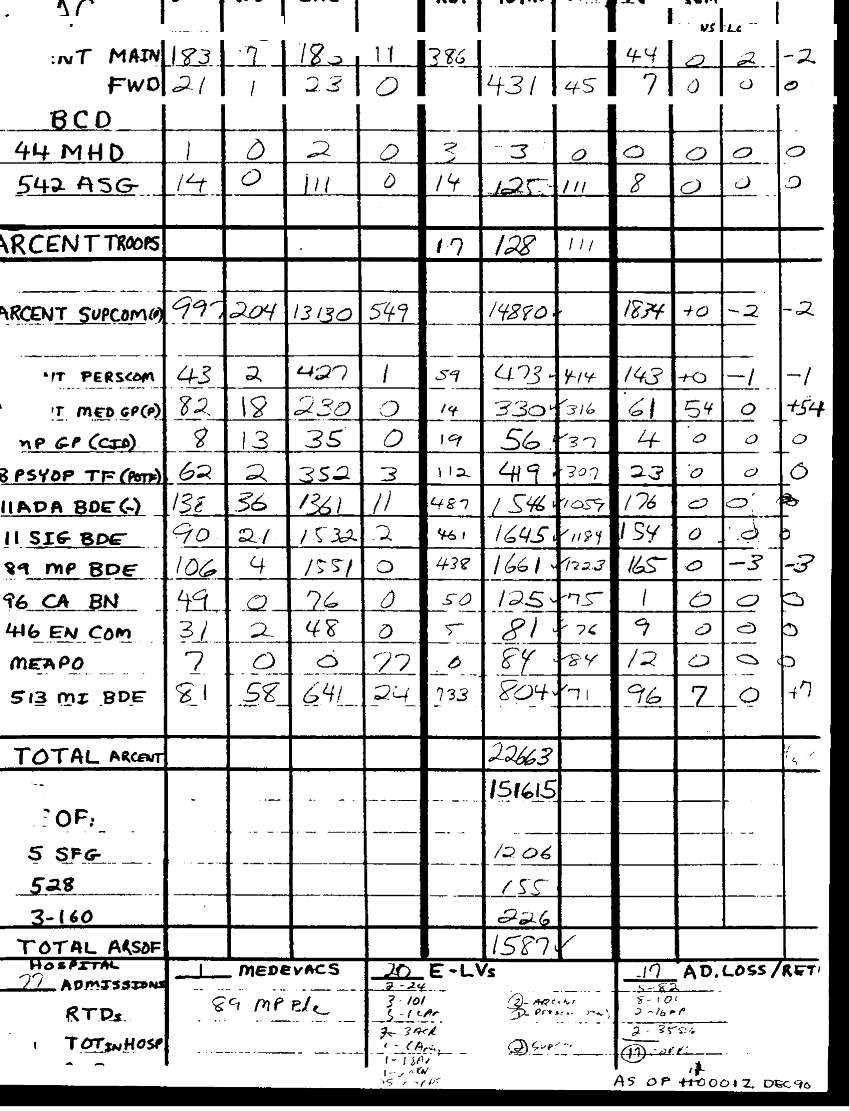 VS LC
MAIN 183 7 11 386 44 0 2 -2
FWD 21 1 23 0 431 45 7 0 0 0
BCD
44 MHD 1 0 2 0 3 3 0 0 0 0 0
542 ASG 14 0 111 0 14 125 111 8 0 0 0
ARCENT TROOPS 17 128 111
ARCENT SUPCOM(P) 997 204 13130 549 14880 1834 +0 -2 -2
PERSCOM 43 2 427 1 59 473 414 143 +0 -1 -1
MED GP(P) 82 18 230 0 14 330 316 61 54 0 +54
MP GP (CID) 8 13 35 0 19 56 37 4 0 0 0
8 PSYOP TF (POTF) 62 2 352 3 112 419 307 23 0 0 0
11 ADA BDE (-) 138 36 1361 11 487 1546 1059 176 0 0
11 SIG BDE 90 21 1532 2 461 1645 1184 154 0 0 0
89 MP BDE 106 4 1551 0 438 1661 1223 165 0 -3 -3
96 CA BN 49 0 76 0 50 125 75 1 0 0 0
416 EN COM 31 2 48 0 5 81 76 9 0 0 0
MEAPO 7 0 0 77 0 84 84 12 0 0 0
513 MI BDE 81 58 641 24 733 804 71 96 7 0 +7
TOTAL ARCENT 22663
151615
OF:
5 SFG 1206
528 155
3-160 226
TOTAL ARSOF 1587
HOSPITAL 1 MEDEVACS 20 E-LVs 17 AD.LOSS/RET
ADMISSIONS 2-24
89 MP Bde 3-101 8-101
RTDs
TOT IN HOSP
AS OF DEC 90